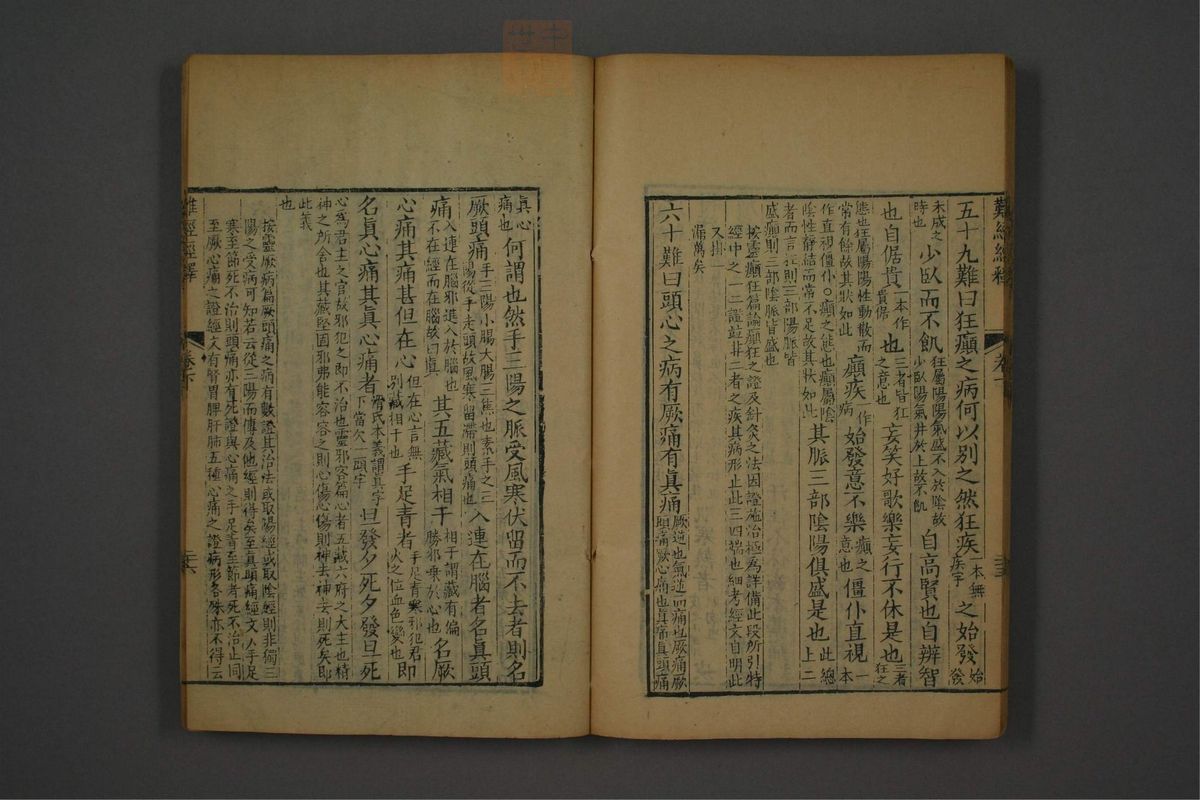 難經經釋 卷下
五十九難曰狂癲之病何以別之然狂疾一本無疾字之始發始發
未成之時也少臥而不飢狂屬陽陽氣盛不入於陰故少臥陽氣并於上故不飢自高賢也自辨智
也自倨貴一本作貴倨也三者皆狂之意也妄笑好歌樂妄行不休是也三者狂之
態也狂屬陽陽性動散而常有餘故其狀如此癲疾始發意不樂癲之意也僵仆直視一本
作直視僵仆○癲之態也癲屬陰陰性靜結而常不足故其狀如此其脈三部陰陽俱盛是也此總上二
者而言狂則三部陽脈皆盛癲則三部陰脈皆盛也
按靈癲狂篇論癲狂之證及針灸之法因證施治極為詳備此段所引特
經中之一二證並非二者之疾其病形止此三四端也細考經文自明此
又掛一漏萬矣
六十難曰頭心之病有厥痛有眞痛厥逆也氣逆而痛也厥痛厥頭痛厥心痛也眞痛眞頭痛
眞心痛也何謂也然手三陽之脈受風寒伏留而不去者則名
厥頭痛手三陽小腸大腸三焦也素手之三陽從手走頭故風寒留滯則頭痛也入連在腦者名眞頭
痛入連在腦邪進入於腦也不在經而在腦故曰眞其五藏氣相干相干謂藏有偏勝邪乘於心也名厥
心痛其痛甚但在心但在心言無別藏相干也手足青者手足青寒邪犯君火之位血色變也即
名眞心痛其眞心痛者滑氏本義謂眞字下當欠一頭字旦發夕死夕發旦死
心為君主之官故邪犯之即不治也靈邪客篇心者五藏六府之大主也精
神之所舍也其藏堅固邪弗能容容之則心傷心傷則神去神去則死矣即
此義也
按靈厥病篇厥頭痛之病有數證其治法或取陽經或取陰經則非獨三
陽之受病可知若云從三陽而傳及他經則得矣至眞頭痛經文人手足
寒至節死不治則頭痛亦有死證與心痛之手足青至節者死不治正同
至厥心痛之證經文有腎胃脾肝肺五種心痛之證病形各殊亦不得云
難經經釋 卷下